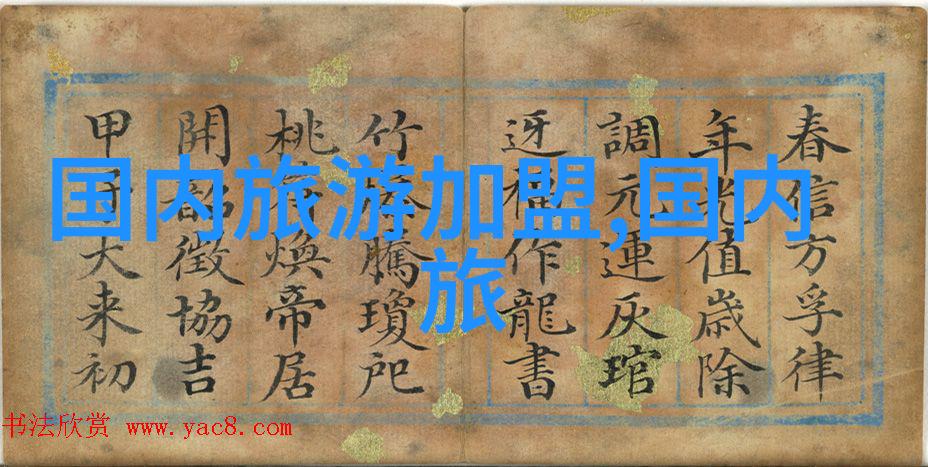 国内旅游加盟,国内
旅
春信方孚律
年光值歲除
調元運灰琯
迓福作龍書
竹騰瓊
桃符煥帝居
開韶徵協吉
甲子大来初
书法欣赏 www.yac8.com